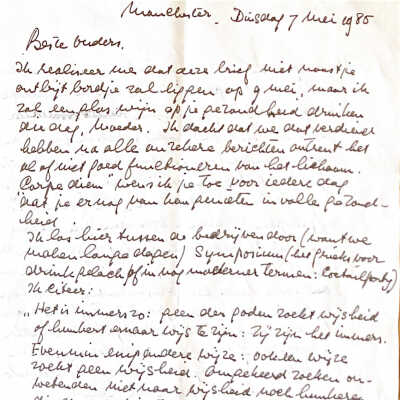 Manchester. Dinsdag 7 Mei 1985
Beste Ouders.
Ik realiseer me dat deze brief niet naast je
ontbijt bordje zal liggen op 9 mei, maar ik
zal een glas wijn op je gezondheid drinken
die dag, Moeder. Ik dacht dat we dat verdiend
hebben na alle onzekere berichten omtrent het
al of niet goed functioneren van het lichaam.
"Carpe diem" wens ik je toe voor iedere dag
dat je er nog van kan genieten in volle gezond-
heid.
Ik las hier tussen de bedrijven door (want we
maken lange dagen) Symposium (het grieks voor
drinkgelach of in nog moderner termen: Cocktailparty)
Ik citeer:
"Het is immers zo: geen der goden zoekt wijsheid
of hunkert ernaar wijs te zijn: zij zijn het immers.
Evenmin enig andere wijze: ook een wijze
zoekt geen wijsheid. Omgekeerd zoeken on-
wetenden niet naar wijsheid noch hunkeren